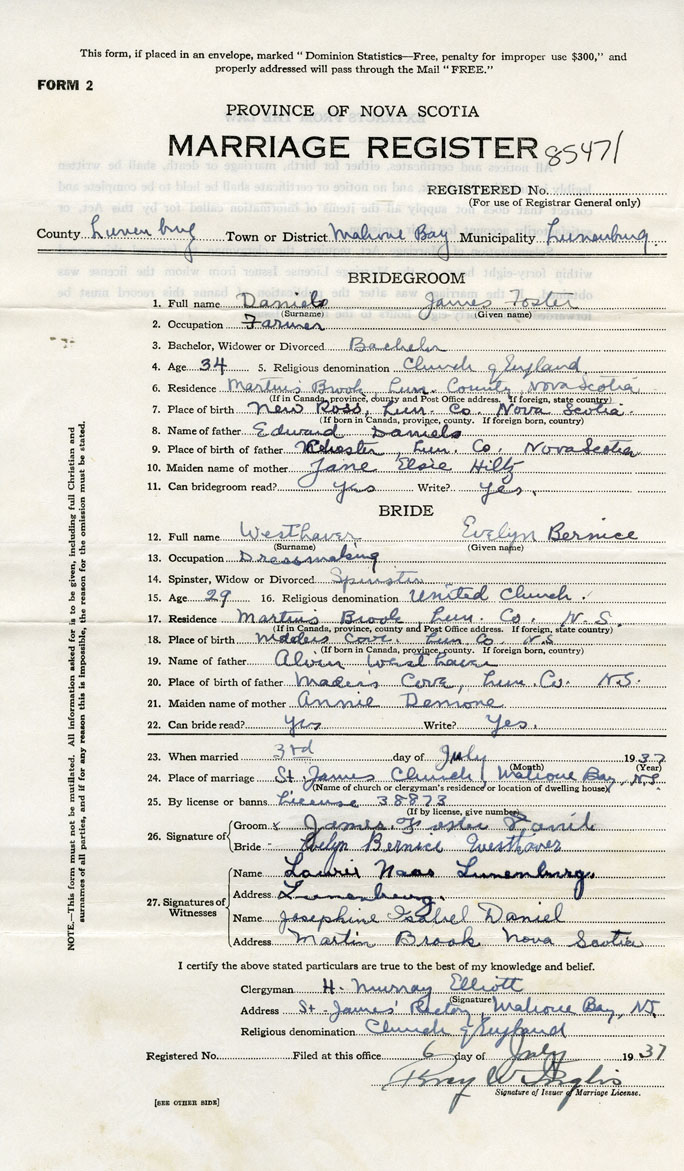 This form, if placed in an envelope, marked "Dominion Statistics—Free, penalty for improper use $300," and
properly addressed will pass through the Mail "FREE."
FORM 2
PROVINCE OF NOVA SCOTIA
MARRIAGE REGISTER 85471
REGISTERED No.
(For use of Registrar General only)
County Lunenburg Town or District Mahone Bay Municipality Lunenburg
BRIDEGROOM
1. Full name Daniels James Foster
(Surname) (Given name)
2. Occupation Farmer
3. Bachelor, Widower or Divorced Bachelor
4. Age 34 5. Religious denomination Church of England
6. Residence Martins Brook, Lun. County, Nova Scotia
(If in Canada, province, county and Post Office address. If foreign, state country)
7. Place of birth New Ross, Lun. Co. Nova Scotia
(If born in Canada, province, county. If foreign born, country)
8. Name of father Edward Daniels
9. Place of birth of father Chester, Lun. Co. Nova Scotia
10. Maiden name of mother Jane Elsie Hiltz
11. Can bridegroom read? Yes Write? Yes.
BRIDE
12. Full name Westhaver Evelyn Bernice
(Surname) (Given name)
13. Occupation Dressmaking
14. Spinster, Widow or Divorced Spinster
15. Age 29 16. Religious denomination United Church.
17. Residence Martins Brook, Lun. Co. N.S.
(If in Canada, province, county and Post Office address. If foreign, state country)
18. Place of birth Maders Cove, Lun. Co. N.S.
(If born in Canada, province, county. If foreign born, country)
19. Name of father Alvin Westhaver
20. Place of birth of father Mader's Cove, Lun. Co. N.S.
21. Maiden name of mother Annie Demone
22. Can bride read? Yes Write? Yes.
23. When married 3rd day of July 1937
(Month) (Year)
24. Place of marriage St. James Church, Mahone Bay, N.S.
(Name of church or clergyman's residence or location of dwelling house)
25. By license or banns License 38873
(If by license, give number)
26. Signature of
Groom x James Foster Daniel
Bride - Evelyn Bernice Westhaver
27. Signatures of Witnesses
Name Laurie Naas Lunenburg.
Address Lunenburg.
Name Josephine Isabel Daniel
Address Martin Brook Nova Scotia
I certify the above stated particulars are true to the best of my knowledge and belief.
Clergyman H. Murray Elliott
(Signature)
Address St. James' Rectory, Mahone Bay, N.S.
Religious denomination Church of England
Registered No. Filed at this office 6 day of July 1937
Signature of Issuer of Marriage License.
[SEE OTHER SIDE]
NOTE.—This form must not be mutilated. All information asked for is to be given, including full Christian and
surnames of all parties, and if for any reason this is impossible, the reason for the omission must be stated.